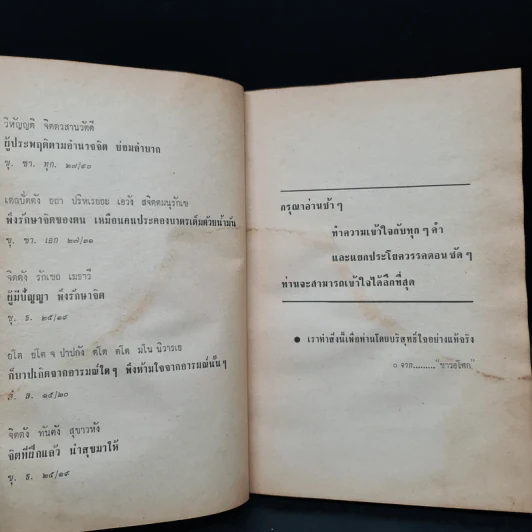 วิหัญญติ จิตตวสานุวัตตี
ผู้ประพฤติตามอำนาจจิต ย่อมลำบาก
ขุ. ชา. ทุก. ๒๗/๙๐
เตลปัตตัง ยถา ปริหเรยยะ เอวัง สจิตตมนุรักเข
พึงรักษาจิตของตน เหมือนคนประคองบาตรเต็มด้วยน้ำมัน
ขุ. ชา. เอก ๒๗/๓๑
จิตตัง รักเขถ เมธาวี
ผู้มีปัญญา พึงรักษาจิต
ขุ. ธ. ๒๕/๑๙
ยโต ยโต จ ปาปกัง ตโต ตโต มโน นิวารเย
ก็บาปเกิดจากอารมณ์ใด ๆ พึงห้ามใจจากอารมณ์นั้น ๆ
สํ. ส. ๑๕/๒๐
จิตตัง ทันตัง สุขาวหัง
จิตที่ฝึกแล้ว นำสุขมาให้
ขุ. ธ. ๒๕/๑๙
กรุณาอ่านช้า ๆ
ทำความเข้าใจกับทุก ๆ คำ
และแยกประโยควรรคตอน ชัด ๆ
ท่านจะสามารถเข้าใจได้ลึกที่สุด
● เราทำสิ่งนี้เพื่อท่านโดยบริสุทธิ์ใจอย่างแท้จริง
๐ จาก........ "ชาวอโศก"